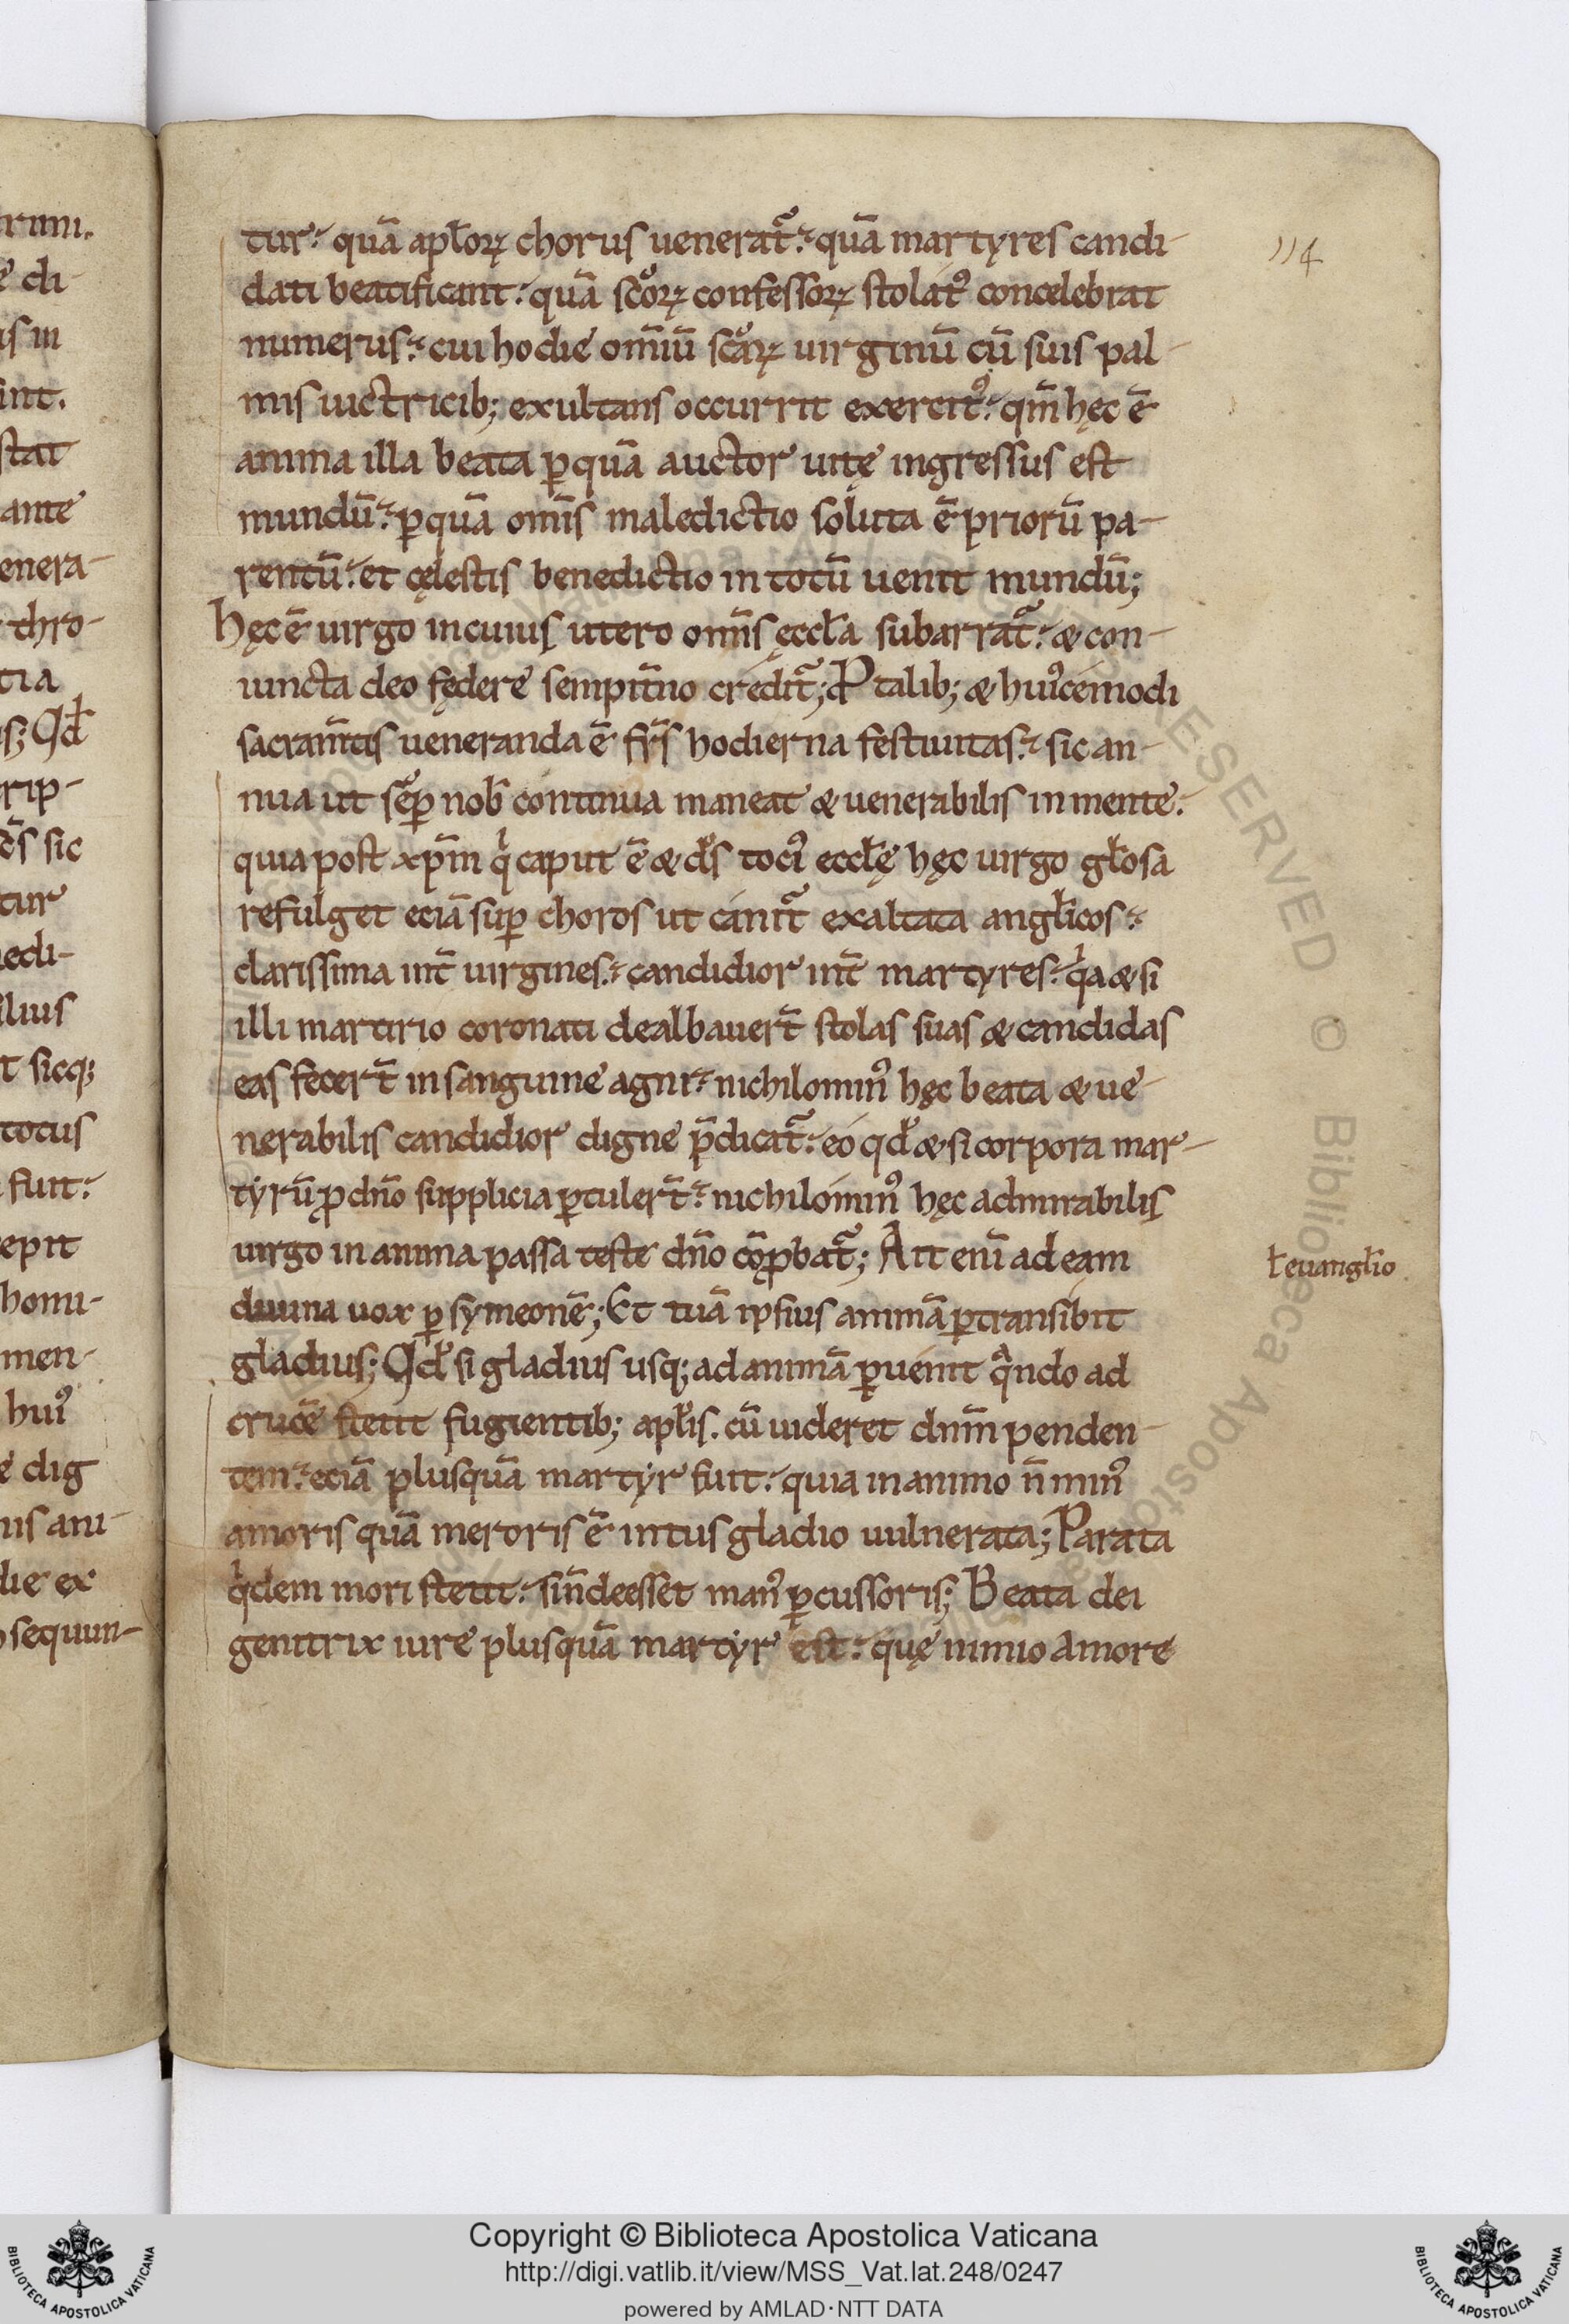 114
tur. quā apłoꝝ chorus ueneratᷣ. quā martyres candi-
dati beatificant. quā sc̄oꝝ confessoꝝ stolatꝰ concelebrat
numerus. cui hodie om̄iū sc̄aꝝ uirginū cū suis pal-
mis uictricib; exultans occurrit exercitꝰ. qm̄ hęc ē
anima illa beata ꝑ quā auctor uitę ingressus est
mundū. ꝑ quā om̄is maledictio soluta ē priorū pa-
rentū. et cęlestis benedictio in totū uenit mundū;
hęc ē uirgo in cuius utero om̄is ęccła subarratᷣ. & con-
iuncta deo fędere sempit̄no creditᷣ; P talib; & huiꝰcemodi
sacram̄tis ueneranda ē fr̄s hodierna festiuitas. sic an-
nua ut sēꝑ nob̄ continua maneat & uenerabilis in mente.
quia post xp̄m qͥ caput ē & dn̄s tociꝰ eccłę hęc uirgo głosa
refulget eciā suꝑ choros ut canitᷣ exaltata angłicos.
clarissima int̄ uirgines. candidior int̄ martyres. qͥa & si
illi martirio coronati dealbauert̄ stolas suas & candidas
eas fecert̄ in sanguine agni. nichilominꝰ hęc beata & ue-
nerabilis candidior digne p̄dicatᷣ. eo qđ & si corpora mar-
tyrū ꝓ dn̄o supplicia ꝑtulert̄. nichilominꝰ hęc admirabilis
uirgo in anima passa teste dn̄o cōꝓbatᷣ; Ait eni̅ ad eam
ł euangłio
diuina uox ꝑ symeonē; Et tuā ipsius animā ꝑtransibit
gladius; Qđ si gladius usq; ad animā ꝑuenit qͣndo ad
crucē stetit fugientib; apłis. cū uideret dn̄m penden-
tem. eciā plusquā martyr fuit. quia in animo n̄ minꝰ
amoris quā meroris ē intus gladio uulnerata; Parata
qͥdem mori stetit. si n̄ deesset manꝰ ꝑcussoris; Beata dei
genitrix iure plusquā martyr est. quę nimio amore
Copyright © Biblioteca Apostolica Vaticana
http://digi.vatlib.it/view/MSS_Vat.lat.248/0247
powered by AMLAD·NTT DATA